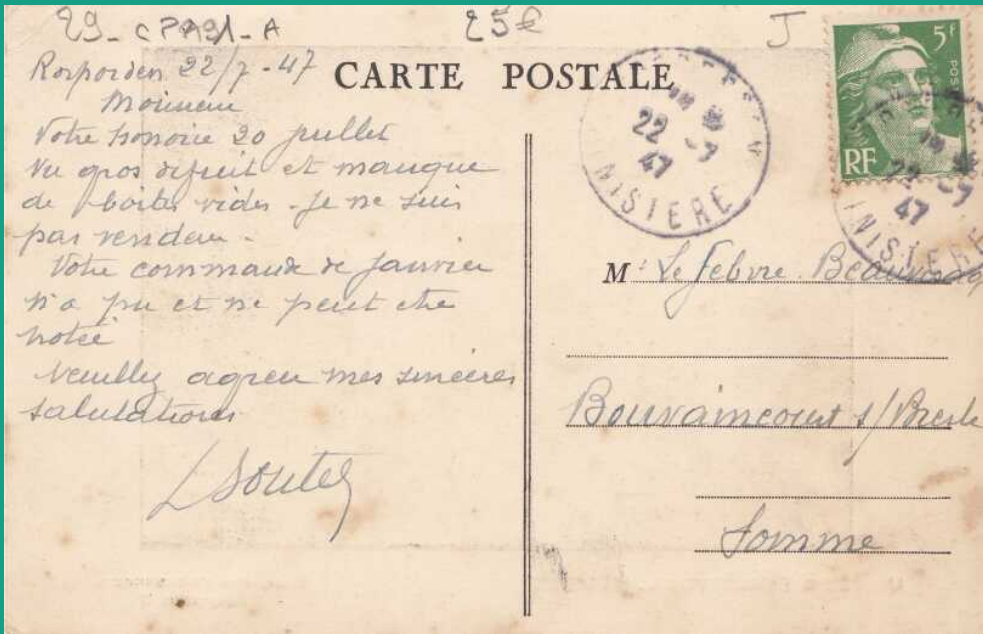 29_CPA91-A
25€
J
Rosporden 22/7-47
Monsieur
Votre honorée 20 juillet
Vu gros déficit et manque
de boites vides - je ne suis
pas vendeur -
Votre commande de Janvier
n'a pu et ne peut être
notée
Veuillez agréer mes sincères
salutations
CARTE POSTALE
22 -7
47
FINISTERE
5F
POSTES
RF
22 -7
47
FINISTERE
M. Lefebvre
Bouvaincourt s/ Bresle
Somme